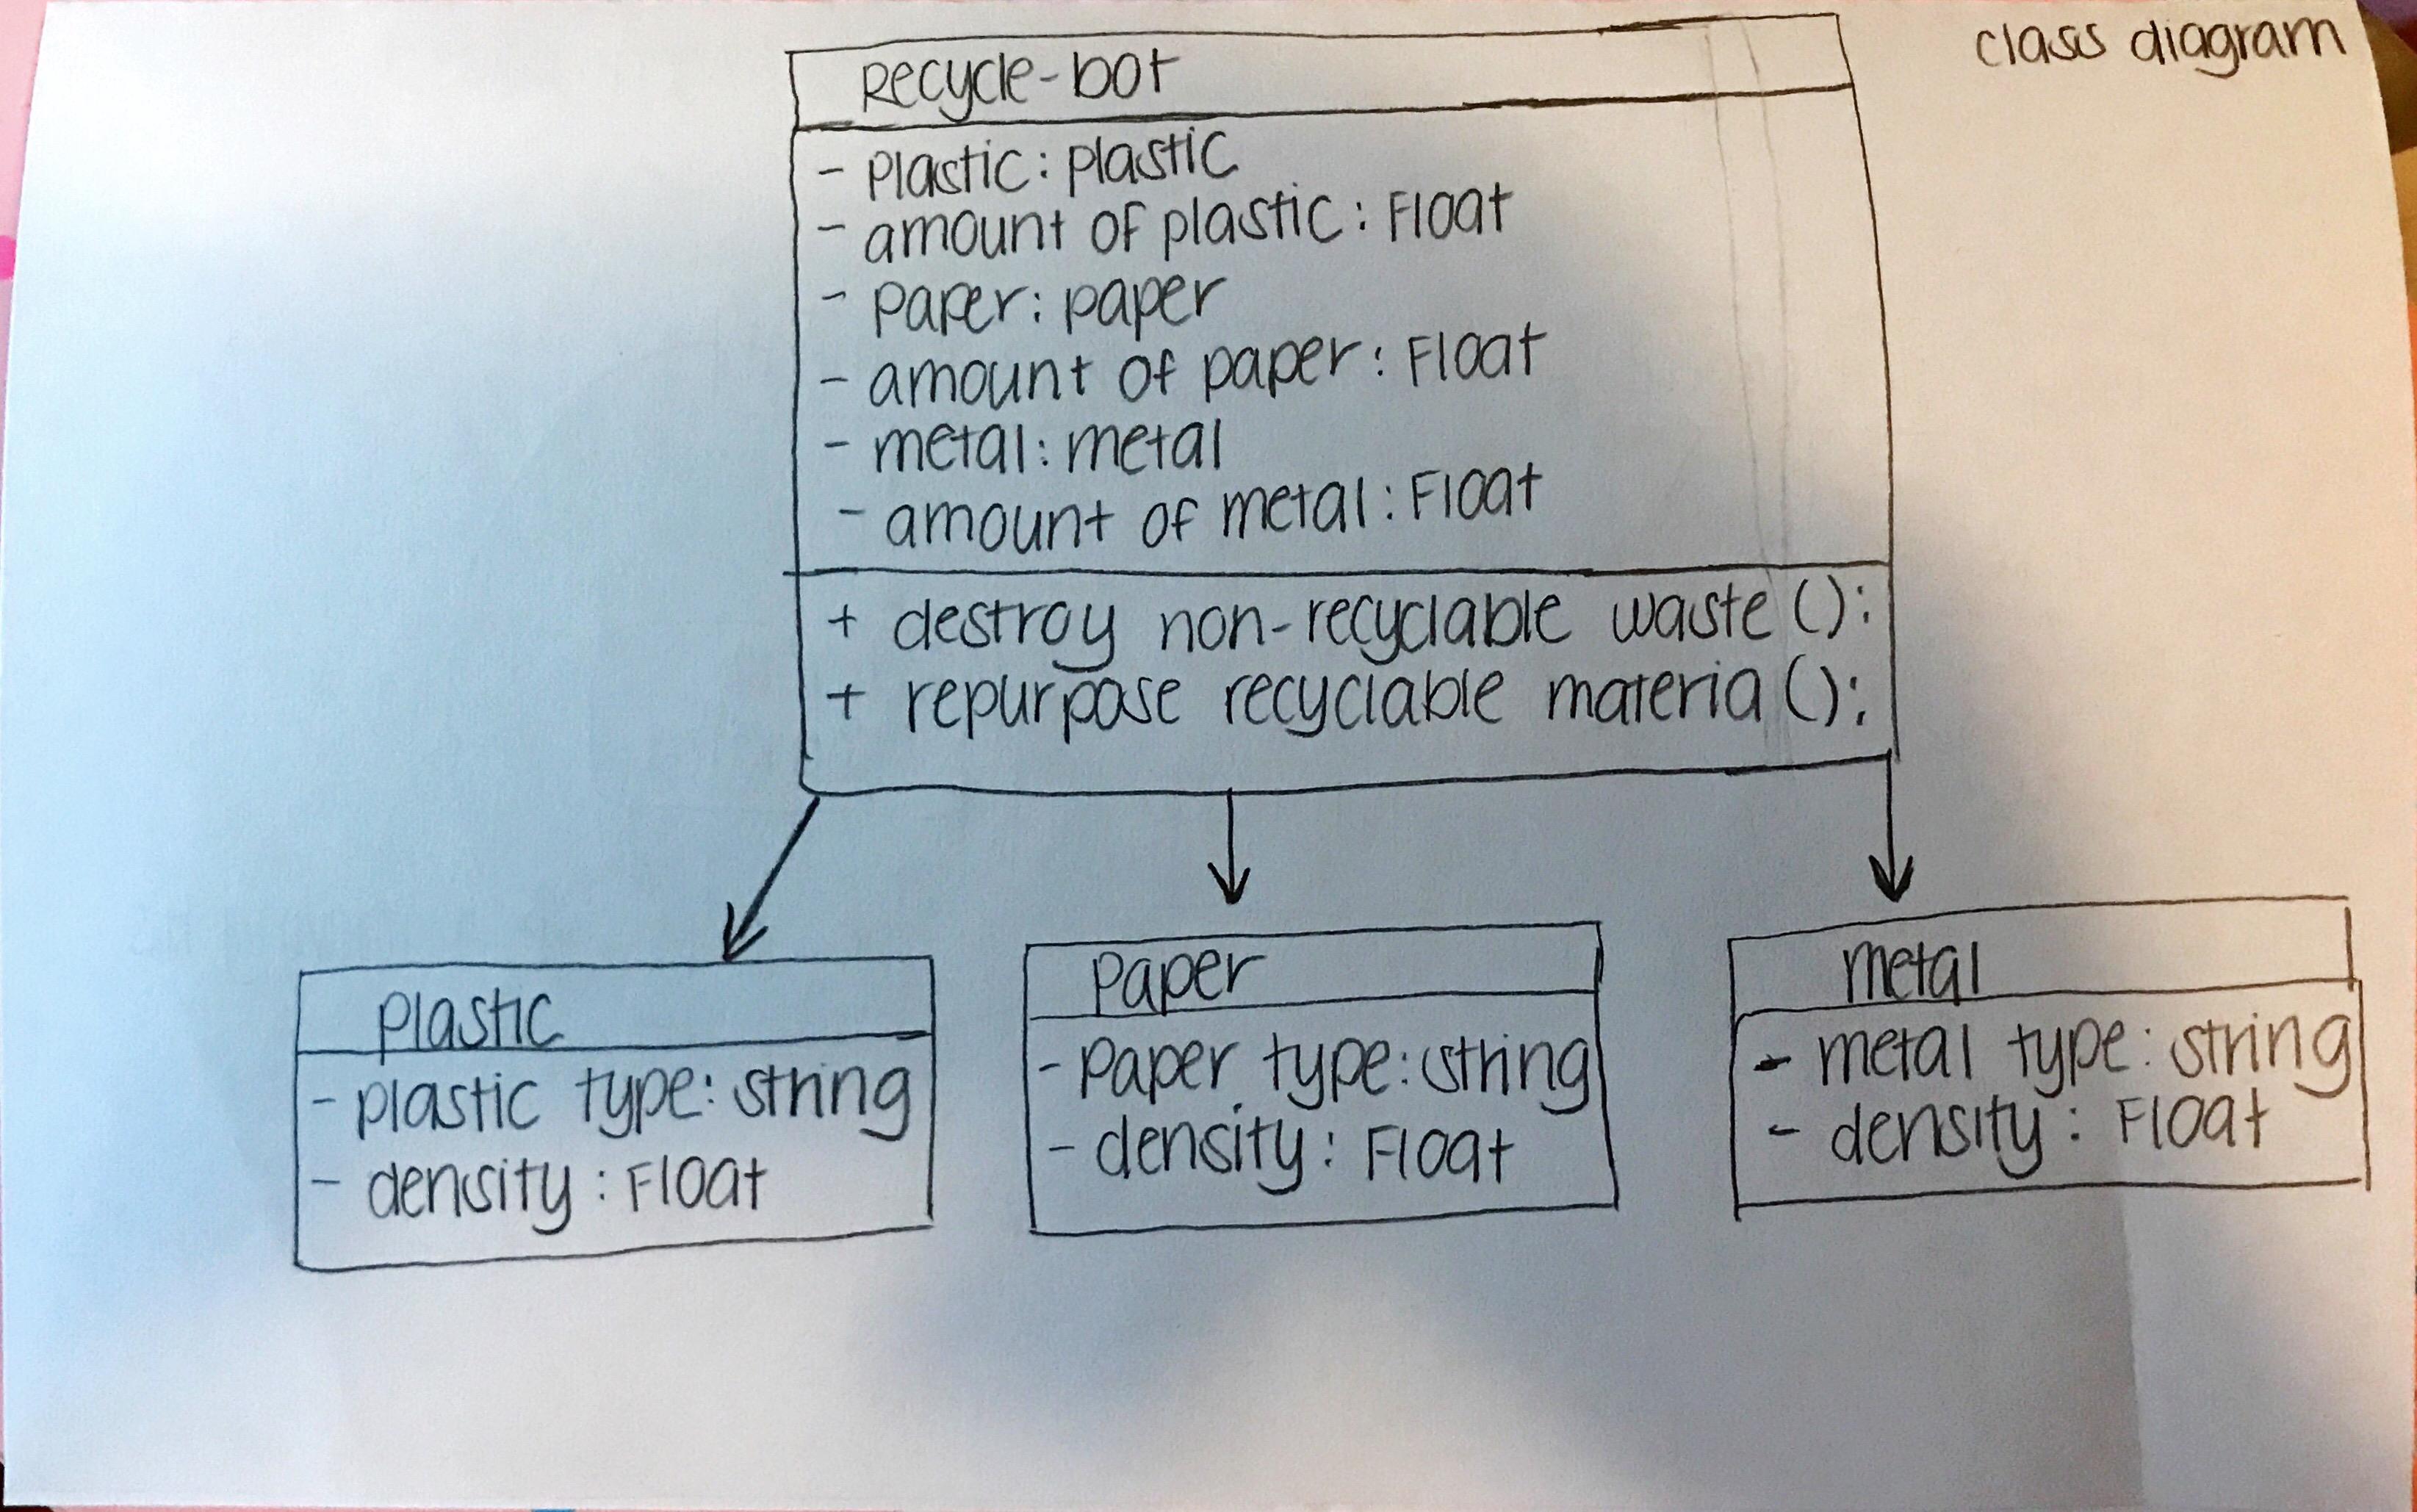 class diagram
Recycle-bot
- Plastic: plastic
- amount of plastic: Float
- paper: paper
- amount of paper: Float
- metal: metal
- amount of metal: Float
+ destroy non-recyclable waste ():
+ repurpose recyclable materia ():
plastic
- plastic type: string
- density: Float
paper
- paper type: string
- density: Float
metal
- metal type: string
- density: Float